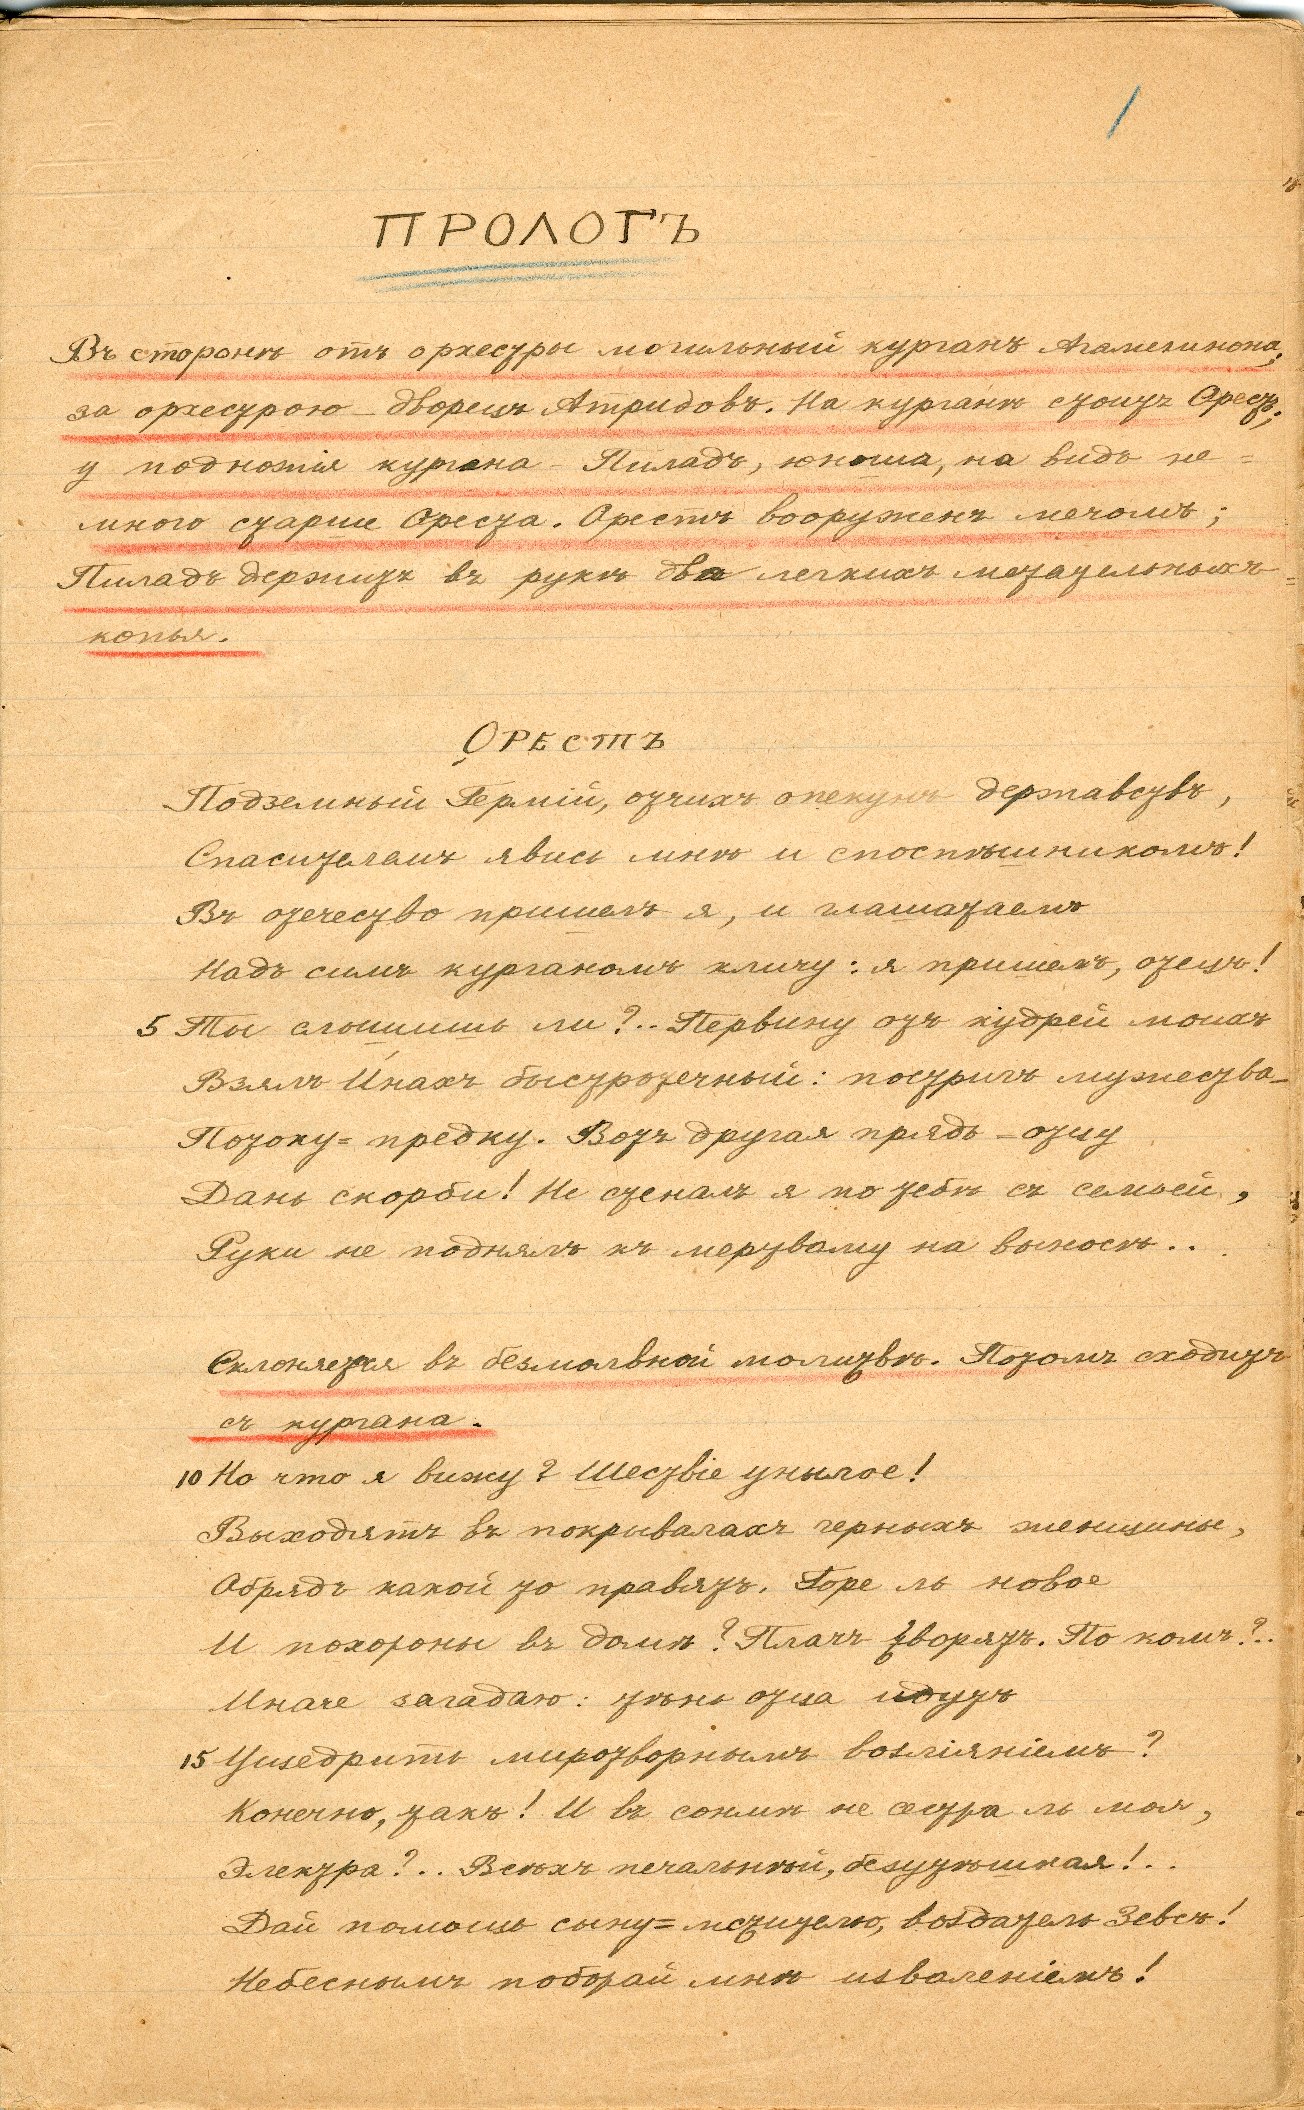 1
ПРОЛОГЪ
Въ сторонѣ отъ орхестры могильный курганъ Агамемнона;
за орхестрою – дворецъ Атридовъ. На курганѣ стоитъ Орестъ;
у подножія кургана – Пиладъ, юноша, на видъ не=
много старше Ореста. Орестъ вооруженъ мечомъ;
Пиладъ держитъ въ рукѣ два легкихъ метательныхъ
копья.
Орестъ
Подземный Гермій, отчихъ опекунъ державствъ,
Спасителемъ явись мнѣ и споспѣшникомъ!
Въ отечество пришелъ я, и глашатаемъ
Надъ симъ курганомъ кличу: я пришелъ, отецъ!
5 Ты слышишь ли?.. Первину отъ кудрей моихъ
Взялъ И́нахъ быстротечный: постригъ мужества –
Потоку=предку. Вотъ другая прядь – отцу
Дань скорби! Не стеналъ я по тебѣ съ семьей,
Руки не поднялъ къ мертвому на выносѣ..
Склоняется въ безмолвной молитвѣ. Потомъ сходитъ
съ кургана.
10 Но что я вижу? Шествіе унылое!
Выходятъ въ покрывалахъ черныхъ женщины,
Обрядъ какой то правятъ. Горе ль новое
И похороны въ домѣ? Плачъ творятъ. По комъ?..
Иначе загадаю: тѣнь отца идутъ
15 Ущедрить миротворнымъ возліяніемъ?
Конечно, такъ! И въ сонмѣ не сестра ль моя,
Электра?.. Всѣхъ печальнѣй, безутѣшная!..
Дай помощь сыну=мстителю, воздатель Зевсъ!
Небеснымъ поборай мнѣ изволеніемъ!